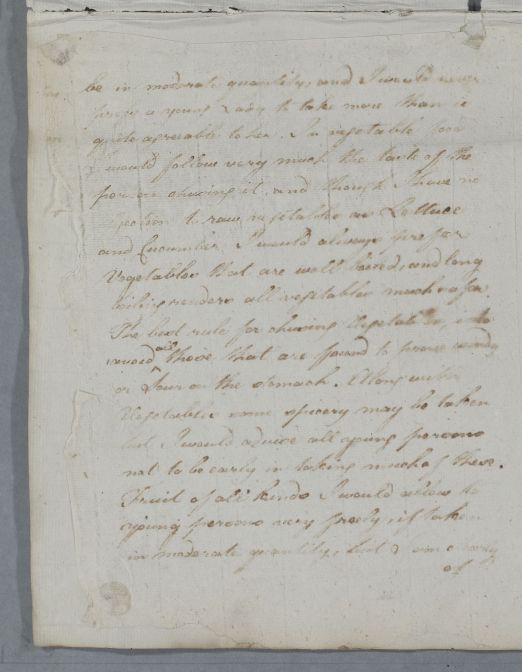 be in moderate quantity, and I would never
press a young Lady to take more than is
quite agreeable to her. In vegetable food
I would follow very much the taste of the
person chusing it, and though I have no
jection to raw vegetables as Lettuce
and Cucumber, I would always prefer
Vegetables that are well boiled, and long
boiling renders all vegetables much safer.
The best rule for chusing Vegetables, is to
avoid all those that are found to prove windy
or Sour on the stomach. Along with
Vegetables some spicery may be taken
but I would advise all young persons
not to be early in taking much of these.
Fruit of all kinds I would allow to
young persons very freely, if taken
in moderate quantity, but I am clearly
of